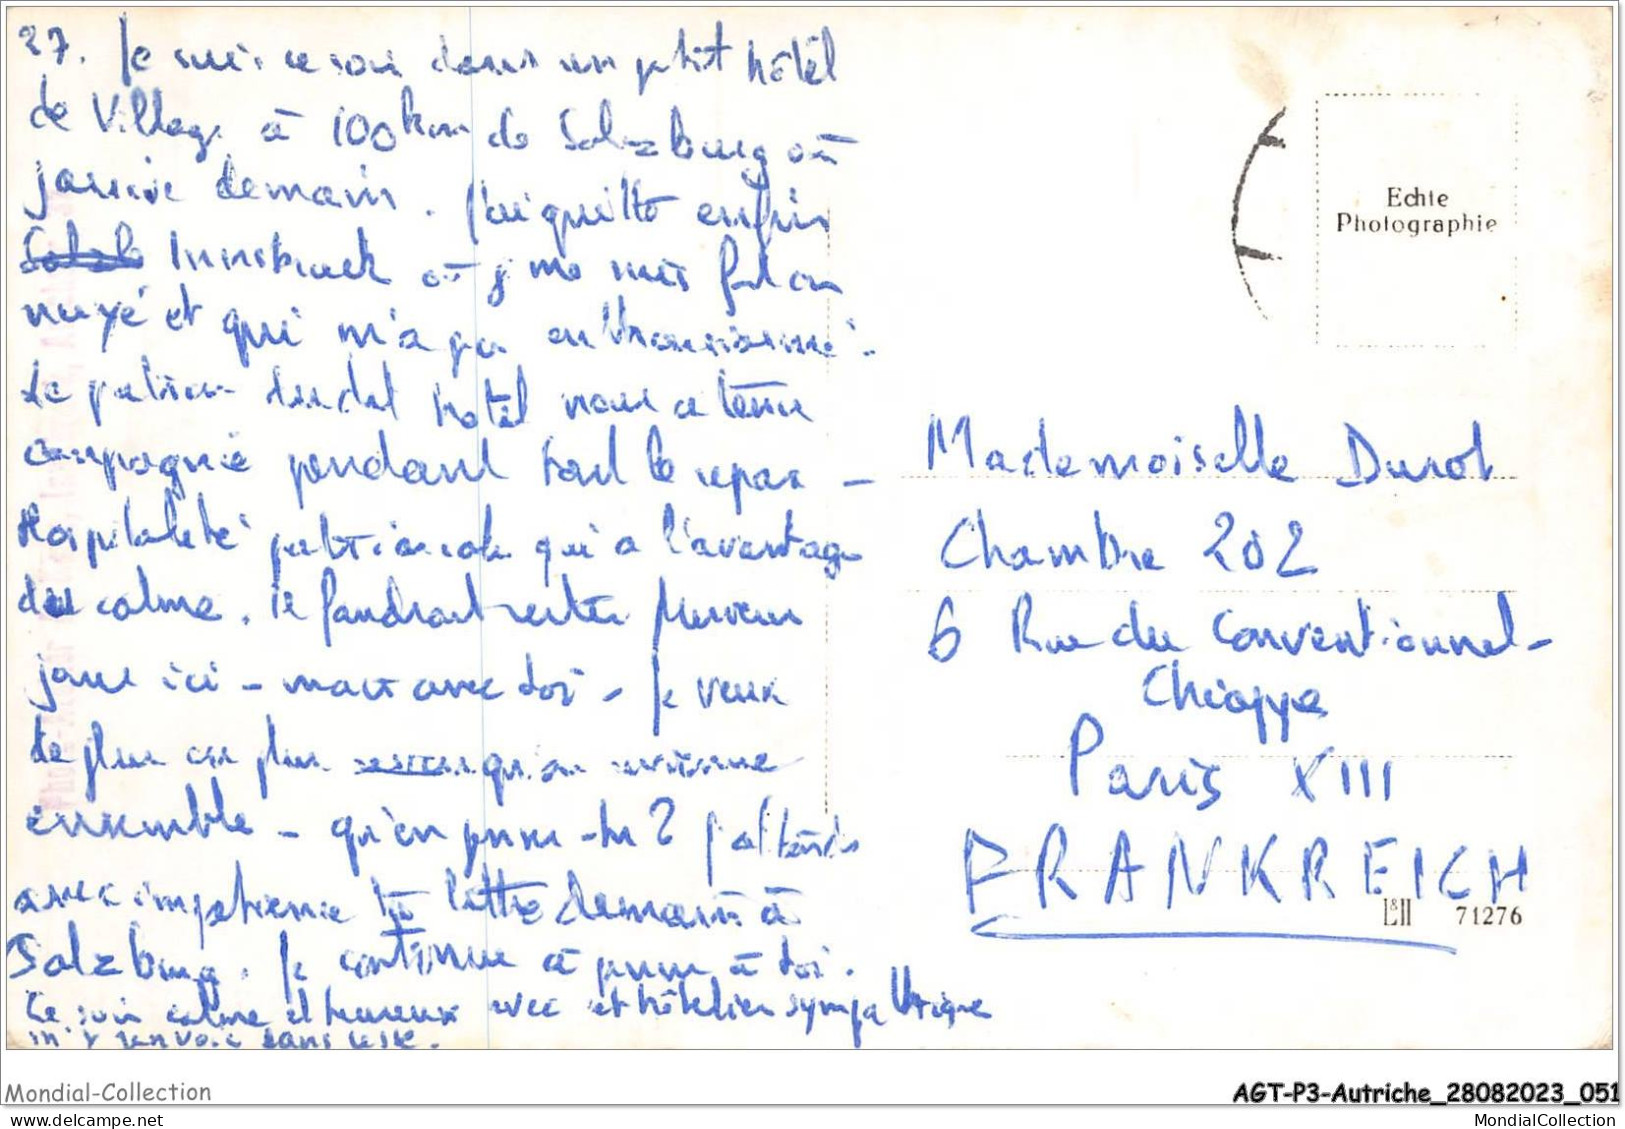 27. Je suis ce soir dans un petit hôtel
de Village à 100 km de Salzburg où
j'arrive demain. J'ai quitté enfin
Innsbruck où je me suis fort en
nuyé et qui m'a peu enthousiasmé.
Le patron dudit hôtel nous a tenu
compagnie pendant tout le repas -
Hospitalité patriarcale qui a l'avantage
du calme. Il faudrait rester plusieurs
jours ici - mais avec toi - Je veux
de plus en plus qu'on revienne
ensemble - qu'en penses-tu ? J'attends
avec impatience ta lettre demain à
Salzburg. Je continue à penser à toi.
Ce soir calme et heureux avec cet hôtelier sympathique
m'y renvoie sans cesse.
Echte
Photographie
Mademoiselle Durot
Chambre 202
6 Rue du Conventionnel-
Chiappe
Paris XIII
FRANKREICH
L&H 71276
Mondial-Collection
AGT-P3-Autriche_28082023_051
Titre du document
MondialCollection